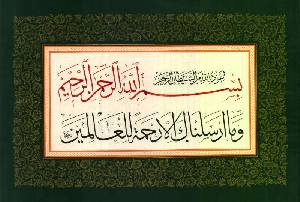 أعوذ بالله من الشيطان الرجيم
بسم الله الرحمن الرحيم
وما أرسلناك إلا رحمة للعالمين